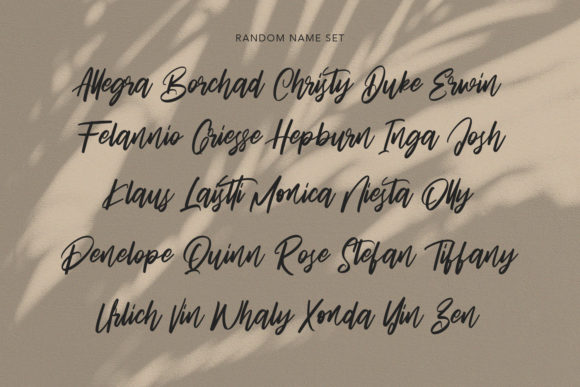 RANDOM NAME SET
Allegra Borchad Christy Duke Erwin
Felannio Griesse Hepburn Inga Josh
Klaus Laistti Monica Niesta Olly
Penelope Quinn Rose Stefan Tiffany
Urlich Vin Whaly Xonda Yin Zen